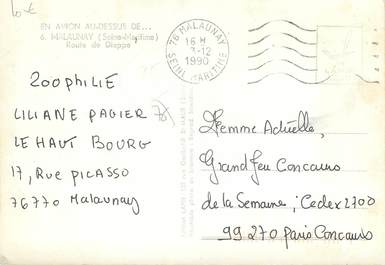 10 €
EN AVION AU-DESSUS DE...
6. MALAUNAY (Seine-Maritime)
Route de Dieppe
76 MALAUNAY
16 H
3-12
1990
SEINE MARITIME
ZOOPHILIE
LILIANE PAGIER
LE HAUT BOURG
17, Rue PICASSO
76770 Malaunay
Femme Actuelle,
Grand Jeu Concours
de la Semaine; Cedex 2700
99 270 Paris Concours